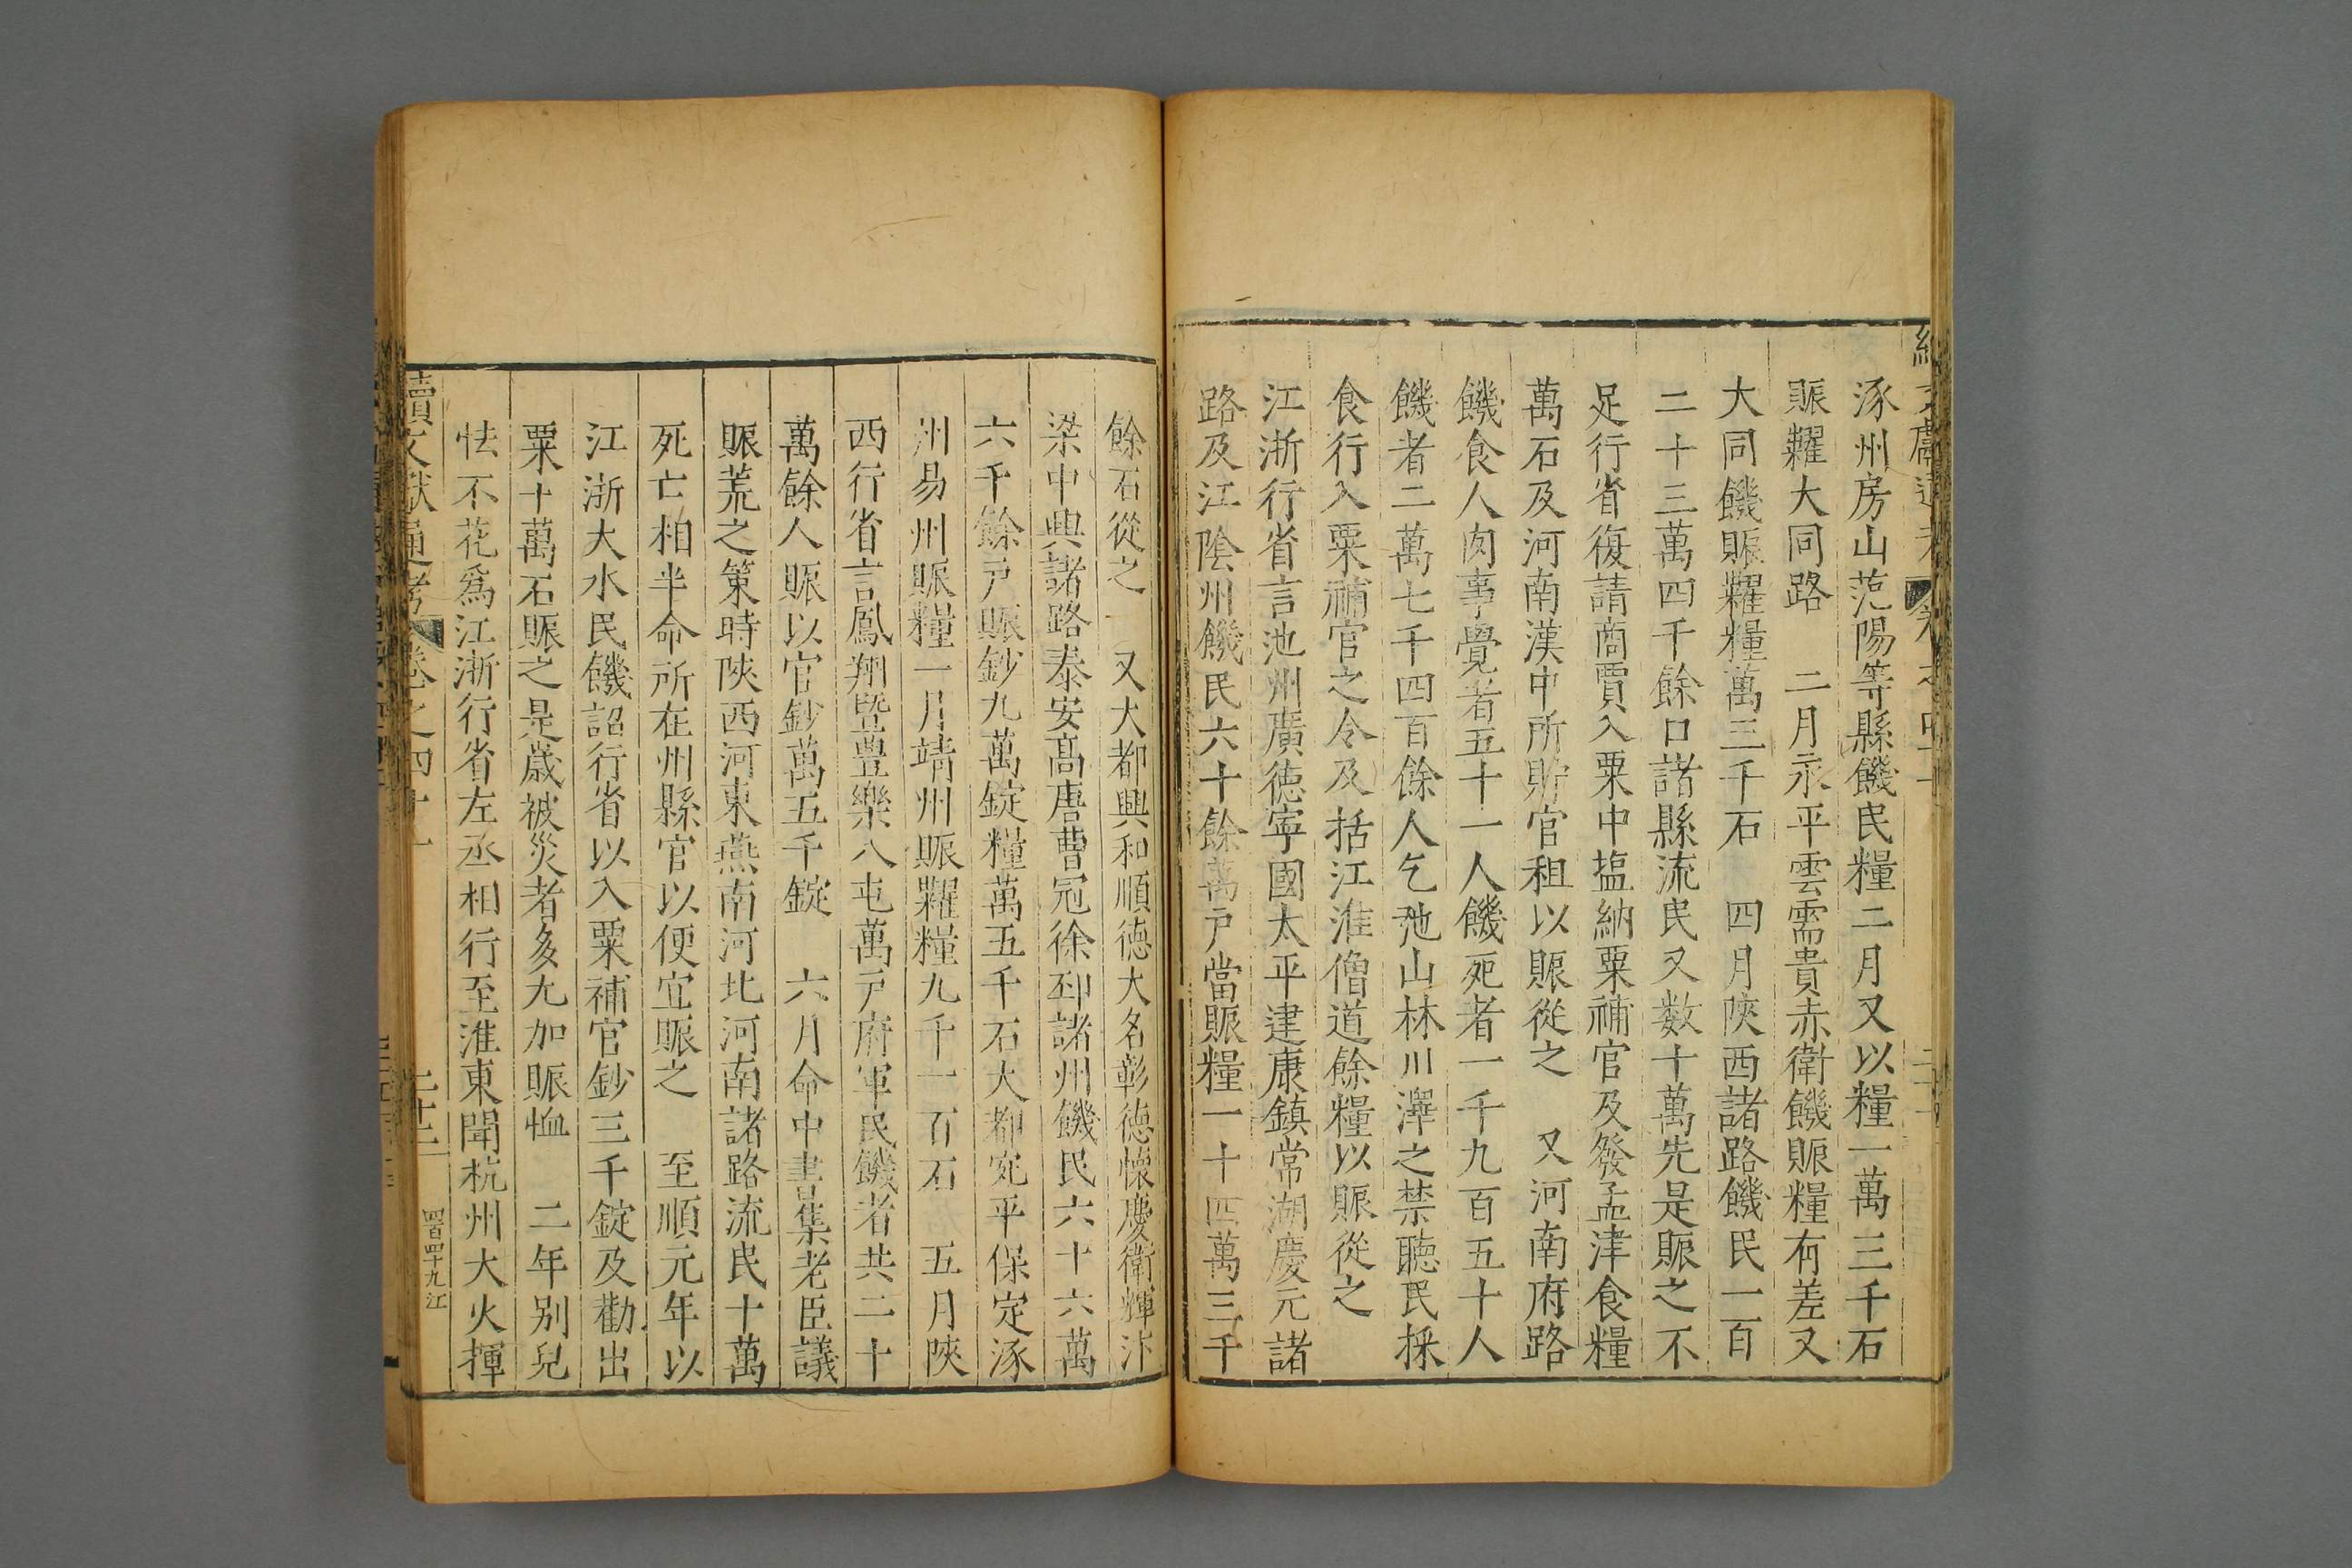 涿州房山范陽等縣饑民糧二月又以糧一萬三千石
賑糶大同路　二月永平雲需貴赤衛饑賑糧有差又
大同饑賑糶糧萬三千石　四月陜西諸路饑民一百
二十三萬四千餘口諸縣流民又数十萬先是賑之不
足行省復請商賈入粟中塩納粟補官及發孟津食糧
萬石及河南漢中所貯官租以賑從之　又河南府路
饑食人肉事覺者五十一人饑死者一千九百五十人
饑者二萬七千四百餘人乞弛山林川澤之禁聽民採
食行入粟補官之令及括江淮僧道餘糧以賑從之
江浙行省言池州廣德寧國太平建康鎮常湖慶元諸
路及江陰州饑民六十餘萬戸當賑糧一十四萬三千
餘石從之　又大都興和順德大名彰德懷慶衛輝汴
梁中興諸路泰安高唐曹冠徐邳諸州饑民六十六萬
六千餘戸賑鈔九萬錠糧萬五千石大都宛平保定涿
州易州賑糧一月靖州賑糶糧九千一百石　五月陜
西行省言鳳翔暨豊樂八屯萬戸府軍民饑者共二十
萬餘人賑以官鈔萬五千錠　六月命中書集老臣議
賑荒之策時陜西河東燕南河北河南諸路流民十萬
死亡相半命所在州縣官以便宜賑之　至順元年以
江浙大水民饑詔行省以入粟補官鈔三千錠及勸出
粟十萬石賑之是歲被災者多尤加賑恤　二年别兒
怯不花爲江浙行省左丞相行至淮東聞杭州大火揮
續文獻通考　卷之四十一　二十二　四百四十九江